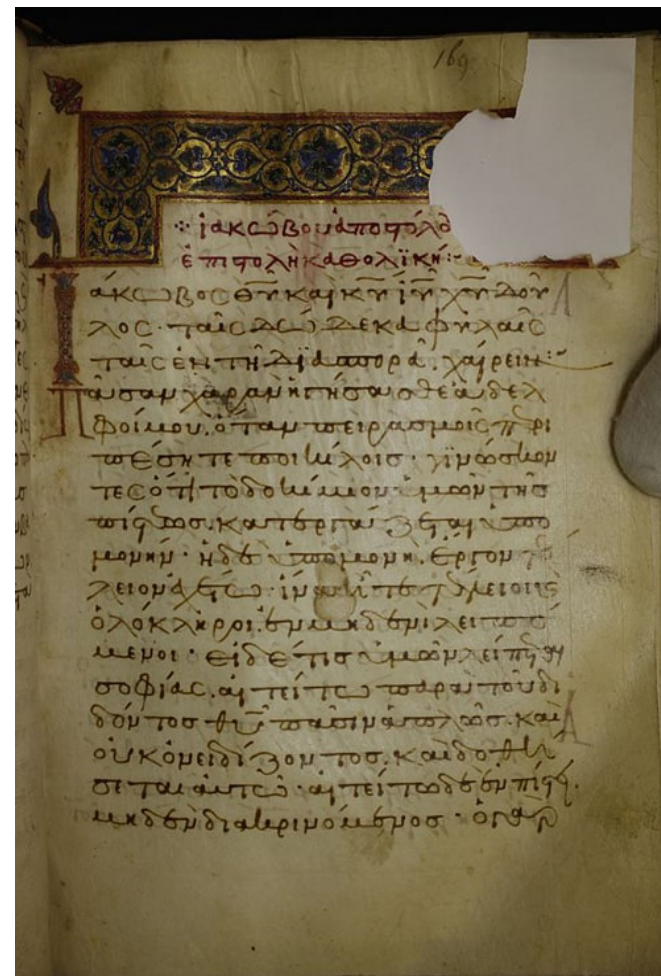 169
ἰακώβου ἀποστόλο
ἐπιστολὴ καθολϊκή:
Ιάκωβος θῦ καὶ κῦ ἰῦ χῦ δοῦ
λος· ταῖς δώδεκα φυλαῖς
ταῖς ἐν τῇ διασπορᾶ. χαίρειν:
Πᾶσαν χαρὰν ἡγήσασθε ἀδελ
φοί μου. ὅταν πειρασμοῖς περι
πέσητε ποικίλοις· γϊνώσκον
τες ὅτι τὸ δοκίμιον ὑμῶν τῆς
πίστεως. κατεργάζεται ὑπο
μονήν· ἡ δὲ ὑπομονὴ. ἔργον τέ
λειον ἐχέτω· ἵνα ἦτε τέλειοι
ὁλόκληροι. ἐν μηδενὶ λειπό
μενοι· εἰ δέ τις ὑμῶν λείπεται
σοφίας. αἰτείτω παρὰ τοῦ δι
δόντος θῦ πᾶσιν ἁπλῶς. καὶ
οὐκ ὀνειδίζοντος. καὶ δοθή
σεται αὐτῶ· αἰτείτω δὲ ἐν πίστει.
μηδὲν διακρινόμενος· ὁ γὰρ